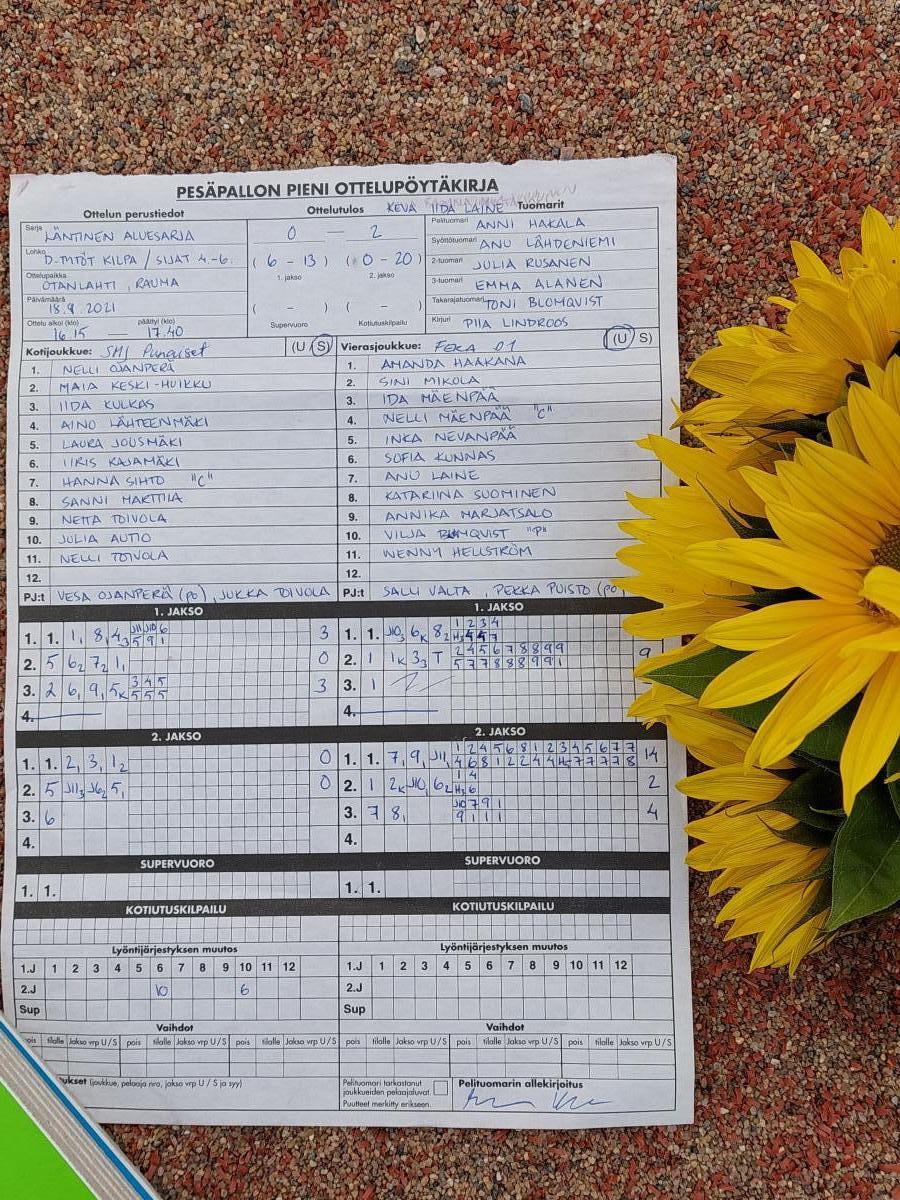 PESÄPALLON PIENI OTTELUPÖYTÄKIRJA
Ottelun perustiedot
Sarja LÄNTINEN ALUESARJA
Lohko D-TYTÖT KILPA / SIJAT 4.-6.
Ottelupaikka OTANLAHTI, RAUMA
Päivämäärä 18.9.2021
Ottelu alkoi (klo) 16.15 — päättyi (klo) 17.40
Ottelutulos KEVÄ IIDA LAINE
0 — 2
(6 - 13) (0 - 20)
1. jakso 2. jakso
( - ) ( - )
Supervuoro Kotiutuskilpailu
Tuomarit
Pelituomari ANNI HAKALA
Syöttötuomari ANU LÄHDENIEMI
2-tuomari JULIA RUSANEN
3-tuomari EMMA ALANEN
Takarajatuomari TONI BLOMQVIST
Kirjuri PIIA LINDROOS
Kotijoukkue: SMJ Punaiset (U S)
1. NELLI OJANPERÄ
2. MAIA KESKI-HUIKKU
3. IIDA KULKAS
4. AINO LÄHTEENMÄKI
5. LAURA JOUSMÄKI
6. IIRIS RAJAMÄKI
7. HANNA SIHTO "C"
8. SANNI MARTTILA
9. NETTA TOIVOLA
10. JULIA AUTIO
11. NELLI TOIVOLA
12.
PJ:t VESA OJANPERÄ (po), JUKKA TOIVOLA
Vierasjoukkue: FERA 01 (U S)
1. AMANDA HAAKANA
2. SINI MIKOLA
3. IDA MÄENPÄÄ
4. NELLI MÄENPÄÄ "C"
5. INKA NEVANPÄÄ
6. SOFIA KUNNAS
7. ANU LAINE
8. KATARIINA SUOMINEN
9. ANNIKA MARJATSALO
10. VILJA BLOMQVIST "P"
11. WENNY HELLSTRÖM
12.
PJ:t SALLI VALTA, PEKKA PUISTO (po
1. JAKSO
1. 1. 1, 8, 4₃ J11 J10 6 3
5 9 1
2. 5 6₂ 7₂ 1, 0
3. 2 6, 9, 5K 3 4 5 3
5 5 5
4.
1. JAKSO
1. 1. J10₃ 6K 8₂ 1 2 3 4
H₃ 4 4 7
2. 1 1K 3₃ T 2 4 5 6 7 8 8 9 9 9
5 7 7 8 8 8 9 9 1
3. 1
4.
2. JAKSO
1. 1. 2, 3, 1₂ 0
2. 5 J11₃ J6₂ 5, 0
3. 6
4.
2. JAKSO
1. 1. 7, 9, J11, 1 2 4 5 6 8 1 2 3 4 5 6 7 7 14
4 6 8 1 2 2 4 4 H₅ 7 7 7 7 8
2. 1 2K J10, 6₂ 1 4 2
H₃ 6
3. 7 8, J10 7 9 1 4
9 1 1 1
4.
SUPERVUORO
1. 1.
SUPERVUORO
1. 1.
KOTIUTUSKILPAILU
KOTIUTUSKILPAILU
Lyöntijärjestyksen muutos
1.J 1 2 3 4 5 6 7 8 9 10 11 12
2.J 10 6
Sup
Lyöntijärjestyksen muutos
1.J 1 2 3 4 5 6 7 8 9 10 11 12
2.J
Sup
Vaihdot
pois tilalle Jakso vrp U/S pois tilalle Jakso vrp U/S pois tilalle Jakso vrp U/S
Vaihdot
pois tilalle Jakso vrp U/S pois tilalle Jakso vrp U/S pois tilalle Jakso vrp U/S
ukset (joukkue, pelaaja nro, jakso vrp U / S ja syy)
Pelituomari tarkastanut
joukkueiden pelaajaluvat.
Puutteet merkitty erikseen.
Pelituomarin allekirjoitus